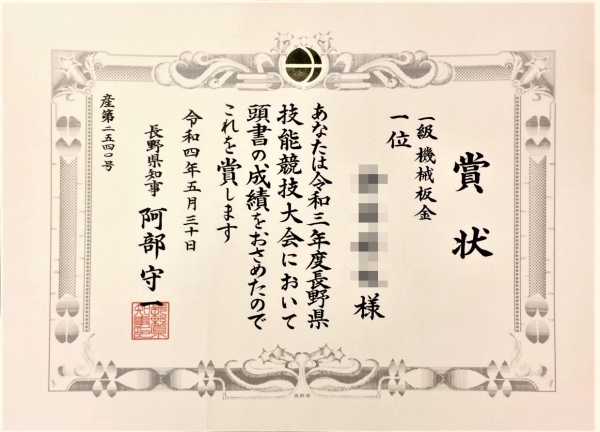 賞状
一級機械板金
一位
様
あなたは令和三年度長野県
技能競技大会において
頭書の成績をおさめたので
これを賞します
令和四年五月三十日
長野県知事 阿部守一
産第二五四〇号